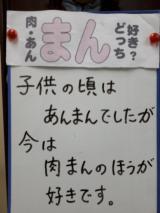 肉・あん
まん
好き？
どっち
子供の頃は
あんまんでしたが
今は
肉まんのほうが
好きです。